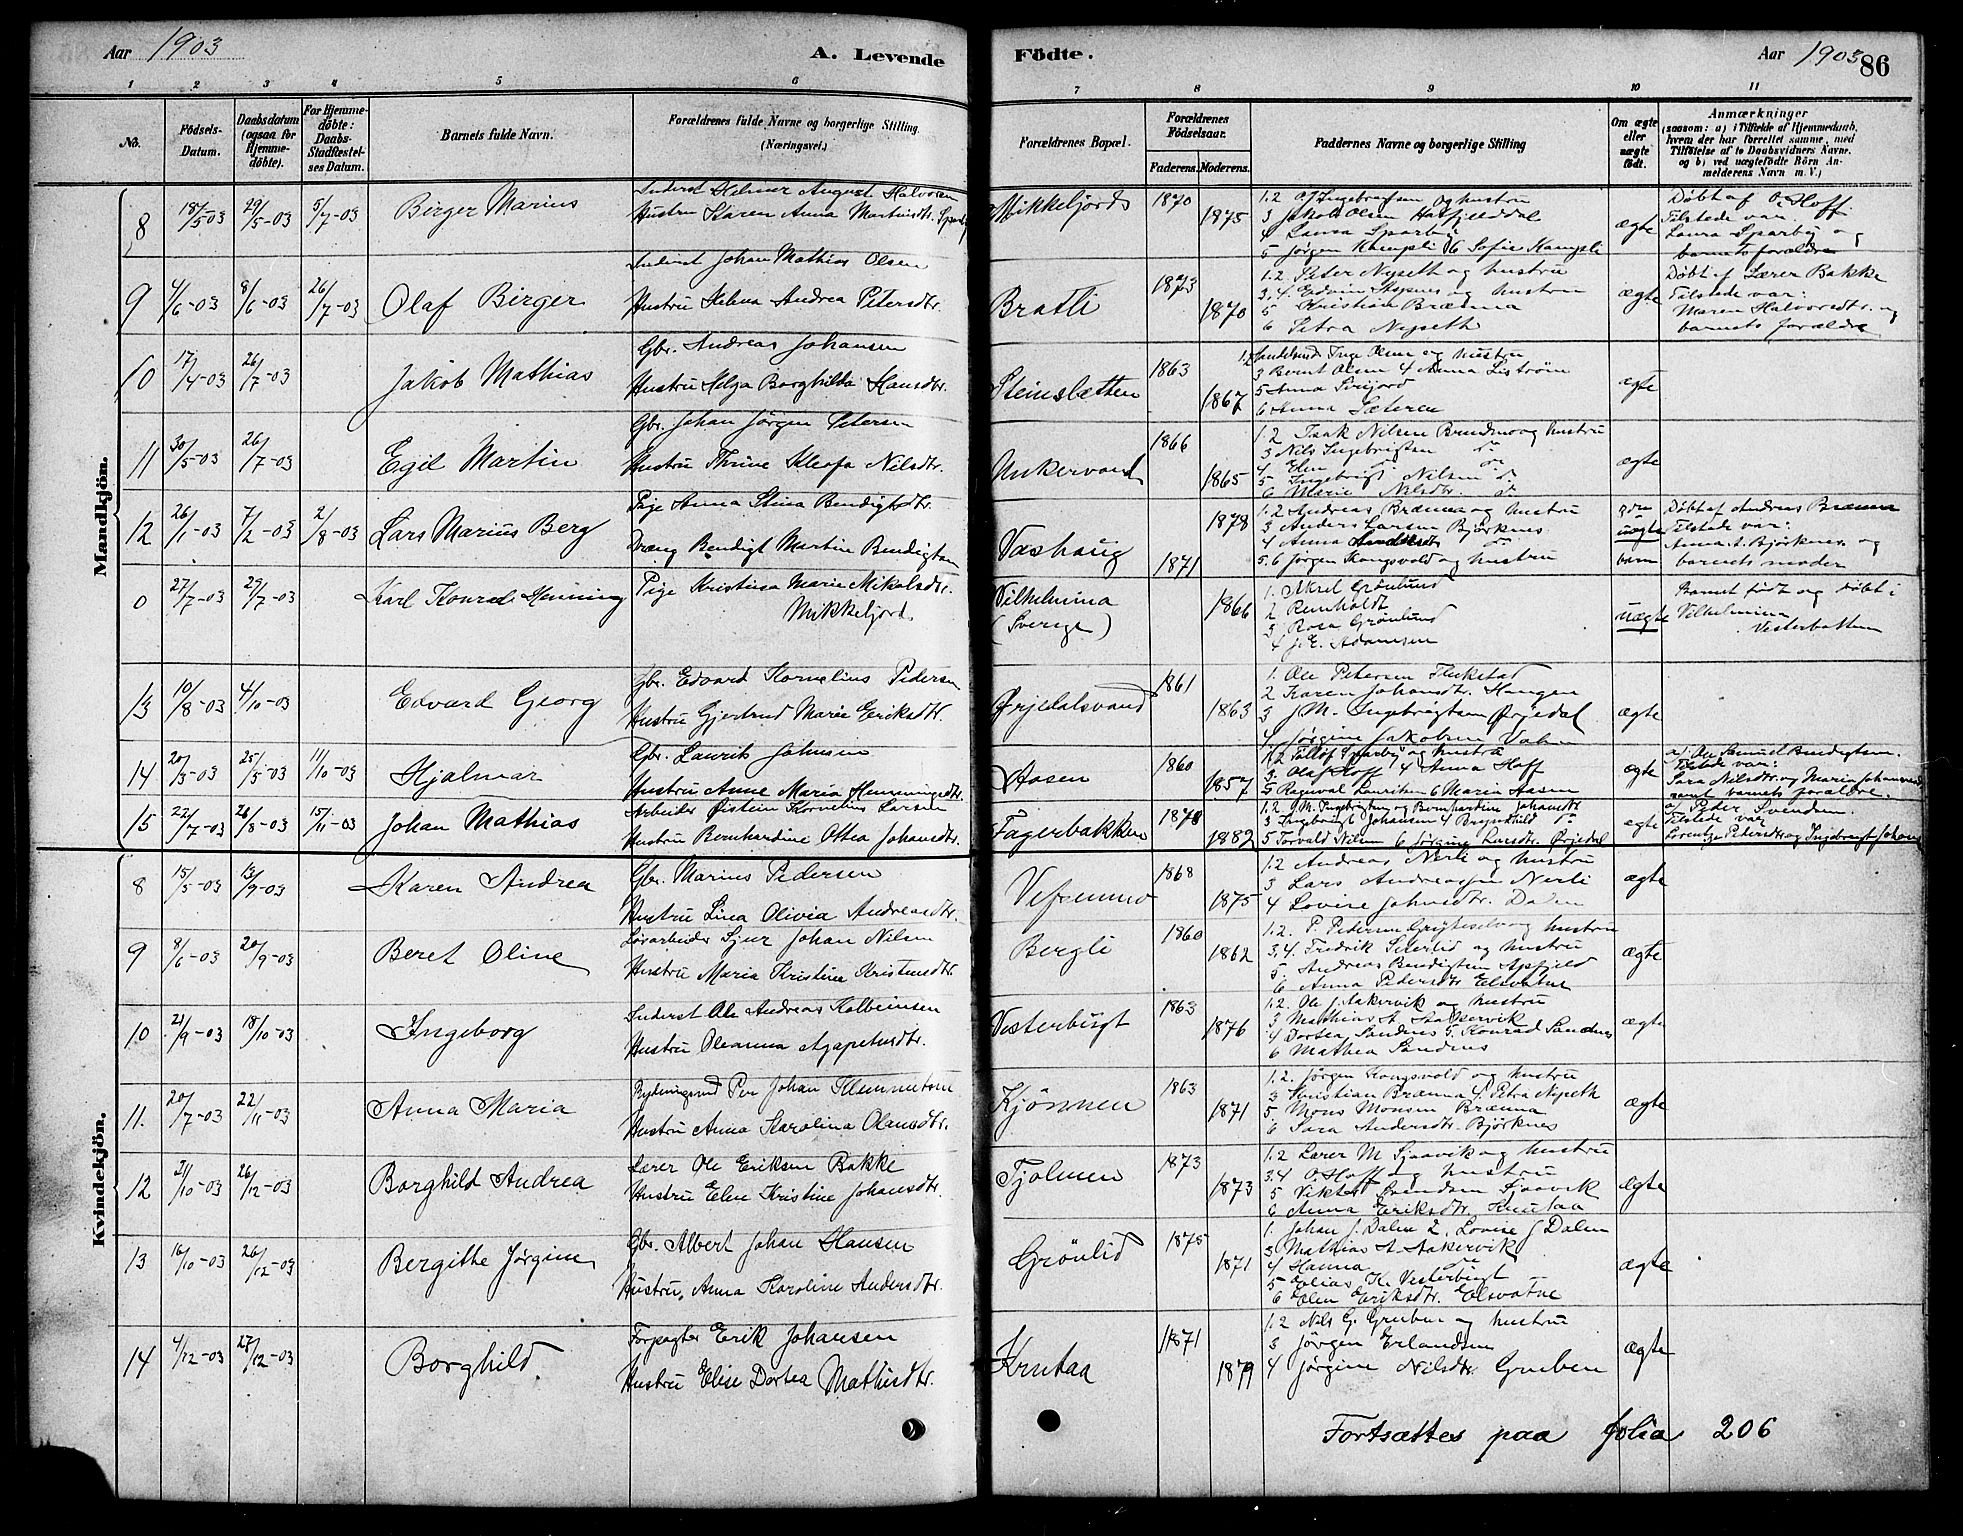 Aar 1903
A. Levende
Födte.
Aar 1903
86
1 2 3 4 5 6 7 8 9 10 11
No.
Födsels-Datum.
Daabsdatum (ogsaa for Hjemme-döbte).
For Hjemme-döbte: Daabs-Stadfæstel-ses Datum.
Barnets fulde Navn.
Forældrenes fulde Navne og borgerlige Stilling.
(Næringsvei.)
Forældrenes Bopæl.
Forældrenes Födselsaar.
Faderens. Moderens.
Faddernes Navne og borgerlige Stilling
Om ægte eller uægte födt.
Anmærkninger
(saasom: a) i Tilfælde af Hjemmedaab, hvem der har forrettet samme, med Tilföielse af to Daabsvidners Navne. og b) ved uægtefödte Börn Anmelderens Navn m. V.)
Mandkjön.
8 18/5-03 29/5-03 5/7-03 Birger Marius
Inderst Helmer August Halvorsen
Hustru Karen Anna Martinsdtr. Sparby
Mikkeljord 1870 1875
1.2 O. Ingebretsen og hustru
3 Jakob Olsen Hatfjelddal
4 Laura Sparby
5 Jørgen Kampli 6 Sofie Kampli
ægte
Døbt af O. Hoff
Tilstede var:
Laura Sparby og
barnets forældre
9 4/6-03 8/6-03 26/7-03 Olaf Birger
Inderst Johan Mathias Olsen
Hustru Helena Andrea Petersdtr.
Bratli 1873 1870
1.2 Peter Nyseth og hustru
3.4. Edvin og hustru
5 Kristian Brænna
6 Petra Nyseth
ægte
Døbt af Lærer Bakke
Tilstede var:
Maren Halvorsdtr. og
barnets forældre
10 17/4-03 26/7-03 Jakob Mathias
Gbr. Andreas Johansen
Hustru Helga Borghilda Hansdtr.
Steinsletten 1863 1867
1.2 Inge Olsen og hustru
3 Bernt Olsen 4 Anna Liström
5 Anna
6 Anna Sæteren
ægte
11 30/5-03 26/7-03 Egil Martin
Gbr. Johan Jørgen Petersen
Hustru Thrine Kleofa Nilsdtr.
Unkervand 1866 1865
1.2 Isak Nilsen og hustru
3 Nils Ingebrigtsen do
4 Elen do
5 Ingebrigt Nilsen do
6 Marie Nilsdtr. do
ægte
12 26/1-03 7/2-03 2/8-03 Lars Marius Berg
Pige Anna Stina Bendigtsdtr.
Dræng Bendigt Martin Bendigtsen
Vashaug 1878 1871
1.2 Andreas Brænna og hustru
3 Anders Larsen Björknes
4 Anna do
5.6 Jørgen Kongsvold og hustru
uægte
barn
Døbt af Andreas Brænna
Tilstede var:
Anna A. Bjørknes og
barnets moder
0 27/7-03 29/7-03 Karl Konrad Henning
Pige Kristina Marie Mikalsdtr.
Mikkeljord
Vilhelmina
(Sverige) 1866
1. Aksel Grönlund
2 Reinholdt
3 Rosa Grönlund
4 J. E. Adamsen
uægte
Barnet født og døbt i
Vilhelmina
Vesterbotten
13 10/8-03 4/10-03 Edvard Georg
Gbr. Edvard Kornelius Pedersen
Hustru Gjertrud Marie Eriksdtr.
Ørjedalsvand 1861 1863
1. Ole Petersen
2 Karen Johansdtr. Haugen
3 J. M. Ingebrigtsen Ørjedal
4 Jørgine Jakobsen
ægte
14 20/5-03 25/5-03 11/10-03 Hjalmar
Gbr. Laurits Johnsen
Hustru Anne Maria Henningsdtr.
Aasen 1860 1857
1.2 Tollof Sparby og hustru
3. Olaf Hoff 4 Anna Hoff
5 Ragnval Lauritsen 6 Maria Aasen
ægte
a/ Ole Samuel Bendigtsen.
Tilstede var:
Sara Nilsdtr. og Maria Johansdtr.
samt barnets forældre.
15 22/7-03 26/8-03 15/11-03 Johan Mathias
Arbeider Øistein Kornelius Larsen
Hustru Bernhardine Ottea Johansdtr.
Fagerbakken 1878 1882
1.2 J. M. Ingebrigtsen og Bernhardine Johansdtr
3 Ingebrigt Johansen 4 Brynhild do
5 Torvald Nilsen 6 Jørgine Larsdtr. Ørjedal
ægte
a/ Peder Svendsen.
Tilstede var
Lorentze Petersdtr og Ingebrigt Johans
Kvindekjön.
8 15/5-03 13/9-03 Karen Andrea
Gbr. Marius Pedersen
Hustru Lina Olivia Andreasdtr.
Vefsenmo 1868 1875
1.2 Andreas Nerli og hustru
3 Lars Andreassen Nerli
4 Lovise Johnsdtr. Dalen
ægte
9 8/6-03 20/9-03 Beret Oline
Løsarbeider Sjur Johan Nilsen
Hustru Maria Kristina Kristensdtr.
Bergli 1860 1862
1.2. P. Pedersen og hustru
3.4. Fredrik og hustru
5. Andreas Bendigtsen Apfjeld
6 Anna Pedersdtr Elsvatne
ægte
10 21/9-03 18/10-03 Ingeborg
Inderst Ole Andreas Kolbeinsen
Hustru Oleanna Agapetusdtr.
Vesterbugt 1863 1876
1.2. Ole J. Aakervik og hustru
3 Mathias A. Aakervik
4 Dortea Sandnes 5. Konrad Sandnes
6 Mathea Sandnes
ægte
11. 20/7-03 22/11-03 Anna Maria
Rydningsmd Per Johan Klemmetsen
Hustru Anna Karolina Olausdtr.
Kjönmen 1863 1871
1.2. Jørgen Kongsvold og hustru
3 Kristian Brænna 4. Petra Nyseth
5. Mons Monsen Brænna
6 Sara Andersdtr. Bjørknes
ægte
12 2/10-03 26/12-03 Borghild Andrea
Lærer Ole Eriksen Bakke
Hustru Elen Kristine Johansdtr.
Fjolmen 1873 1873
1.2 Lærer M Sjaavik og hustru
3.4 O. Hoff og hustru
5 Viktor Svendsen Sjaavik
6 Anna Eriksdtr. Krutaa
ægte
13 16/10-03 26/12-03 Bergithe Jørgine
Gbr. Albert Johan Hansen
Hustru Anna Karoline Andersdtr.
Grönlid 1875 1871
1. Johan J. Dalen 2. Lovise J Dalen
3 Mathias A. Aakervik
4 Hanna do
5 Elias K. Vesterbugt
6 Elen Eriksdtr. Elsvatne
ægte
14 4/12-03 27/12-03 Borghild
Forpagter Erik Johansen
Hustru Elise Dortea Mathisdtr.
Krutaa 1871 1879
1.2 Nils G. Gruben og hustru
3 Jörgen Erlandsen
4 Jørgine Nilsdtr. Gruben
ægte
Fortsættes paa folia 206